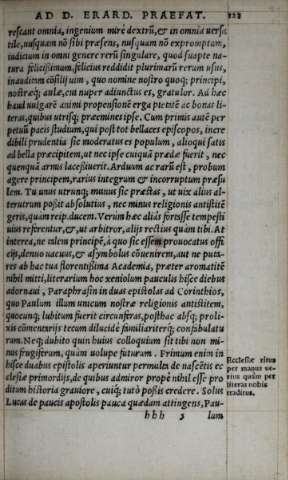 AD D. ERARD. PRAEFAT. 
restant omnia, ingenium mirè dextrũ, & in omnia uersa
tile, nusquam nõ sibi præsens, nusquam nõ expromptum,
iudicium in omni genere rerũ singulare, quod suapte na-
tura felicissimum, felicius reddidit plurimarũ rerum usus,
inauditum cõsilijs uim, quo nomine nostro quoq; principi,
nostræq; aulæ, cui nuper adiunctus es, gratulor. Ad hæc
haud uulgarẽ animi propensionẽ erga pietatẽ ac bonas li-
teras, quibus utrisq; præmines ipse. Cum primis autẽ per
petuũ pacis studium, qui post tot bellaces episcopos, incre
dibili prudentia sic moderatus es populum, alioqui satis
ad bella præcipitem, ut nec ipse cuiquã prædæ fuerit, nec
quemquã armis lacessiuerit. Arduum ac rarũ est, probum
agere principem, rarius integrum & incorruptum præsu
lem. Tu unus utrunq; munus sic præstas, ut uix alius al-
terutrum possit absolutius, nec minus religionis antistitẽ
geris, quàm reip. ducem. Verùm hæc aliâs fortasse tempesti
uius referentur, &, ut arbitror, alijs rectius quàm tibi. At
interea, ne talem principẽ, à quo sic essem prouocatus offi
cijs, denuo uacuus, & asymbolus cõuenirem, aut ne puta-
res ab hac tua florentissima Academia, præter aromatitẽ
nihil mitti, literarium hoc xeniolum pauculis hisce diebus
adornaui, Paraphrasin in duas epistolas ad Corinthios,
quo Paulum illum unicum nostræ religionis antistitem,
quocunq; lubitum fuerit circunferas, posthac absq; proli-
xis cõmentarijs tecum dilucidè familiariterq; confabulatu
rum. Neq; dubito quin huius colloquium sit tibi non mi-
nus frugiferum, quàm uolupe futurum. Primum enim in
hisce duabus epistolis aperiuntur permulta de nascẽtis ec
clesiæ primordijs, de quibus admiror propè nihil esse pro
ditum historia grauiore, cuiq; tutò possis credere. Solus
Lucas de paucis apostolis pauca quædam attingens, Pau-
hhh 3 lum
Ecclesiæ ritus
per manus ue-
rius quàm per
literas nobis
traditus.